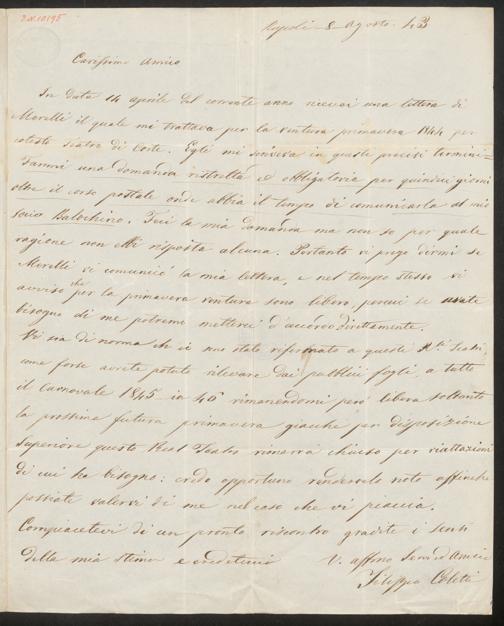 Napoli 8 Agosto. 43
Carissimo Amico
In data 14 aprile del corrente anno ricevei una lettera di
Morelli il quale mi trattava per la ventura primavera 1844 per
cotesto Teatro di Corte. Egli mi scriveva in queste precisi termini=
Fammi una domanda ristretta ed obbligatoria per quindici giorni
oltre il corso postale onde abbia il tempo di comunicarla al mio
socio Balochino. Feci la mia domanda ma non so per quale
ragione non ebbi risposta alcuna. Pertanto vi prego dirmi se
Morelli vi comunicò la mia lettera, e nel tempo stesso vi
avviso che per la primavera ventura sono libero, perciò se avete
bisogno di me potremo metterci d'accordo direttamente.
Vi sia di norma che io sono stato riformato a questi Rli Teatri,
come forse avrete potuto rilevare dai pubblici fogli a tutto
il Carnovale 1845 in 46 rimanendomi però libera soltanto
la prossima futura primavera giacchè per disposizione
Superiore questo Real Teatro rimarrà chiuso per riattazioni
di cui ha bisogno: credo opportuno rendervelo noto affinchè
possiate valervi di me nel caso che vi piaccia.
Compiacetevi di un pronto riscontro gradite i sensi
della mia stima e credetemi V. affmo Servo ed Amico
Filippo Coletti